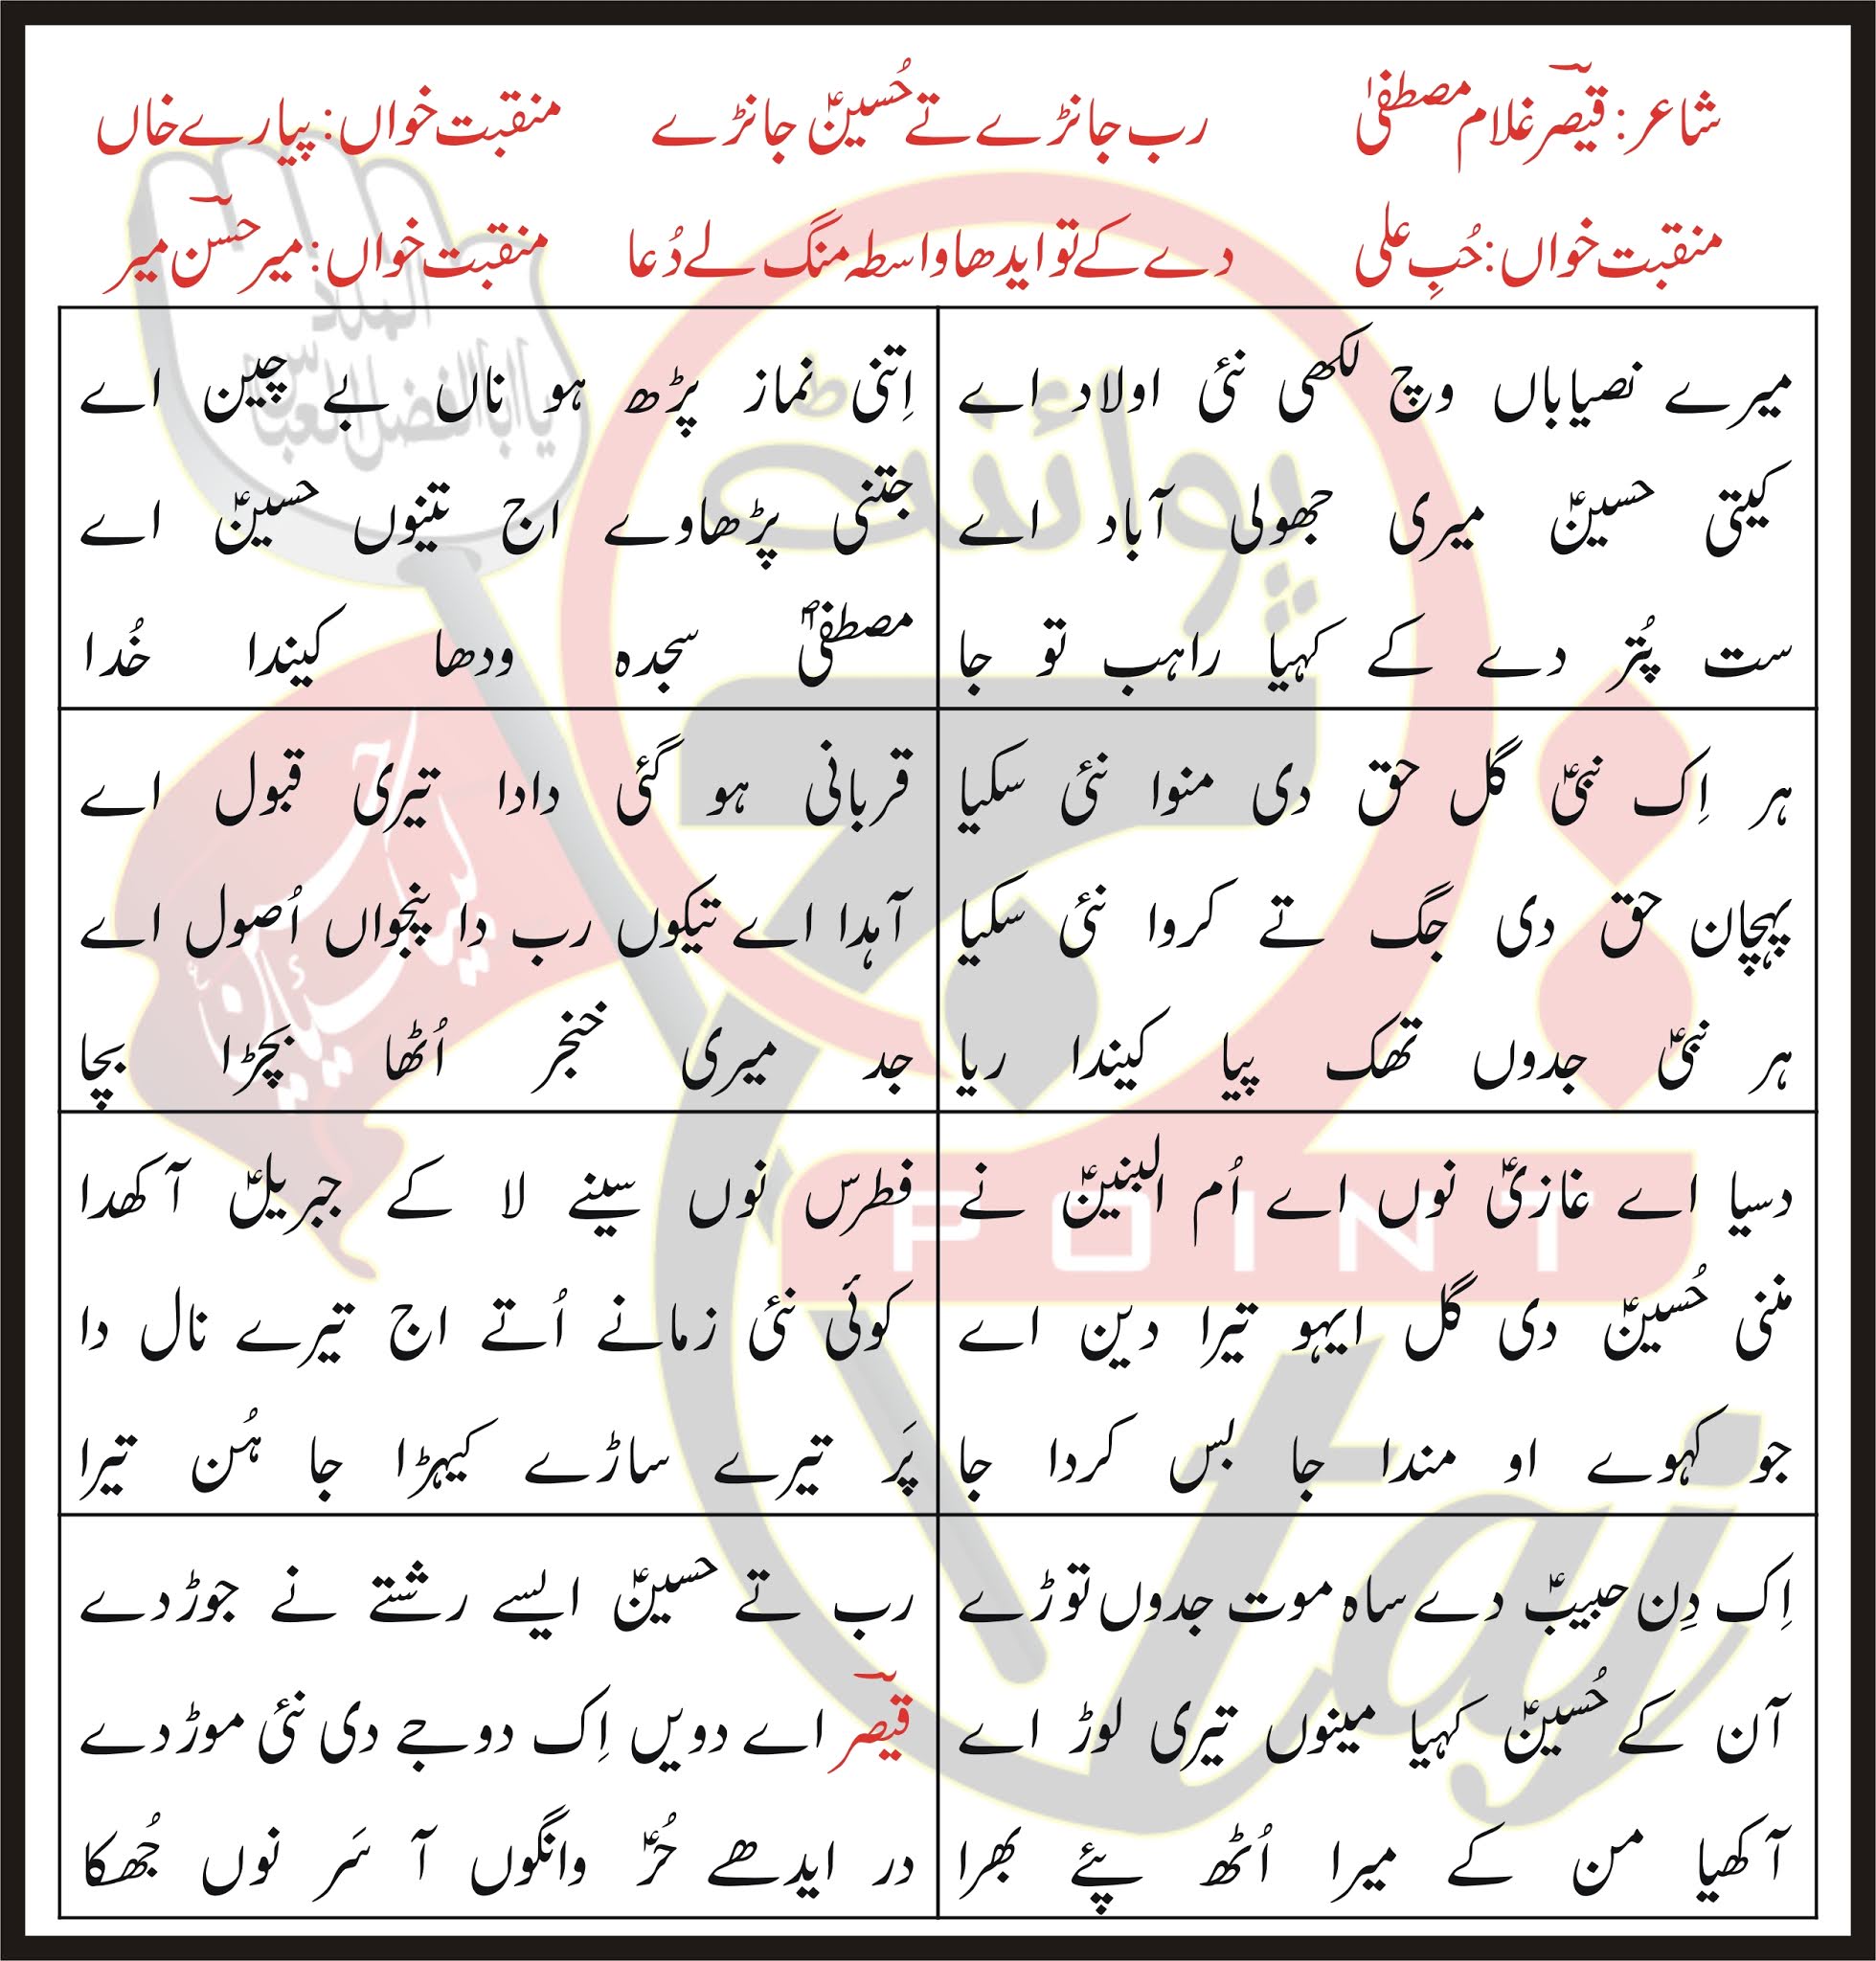 شاعر: قیصرؔ غلام مصطفیٰ
رب جانڑے تے حُسینؑ جانڑے
منقبت خواں: پیارے خاں
منقبت خواں: حُبِ علی
دے کے تو ایدھا واسطہ منگ لے دُعا
منقبت خواں: میر حسنؔ میر
میرے نصیاباں وچ لکھی نئی اولاد اے
کیتی حسینؑ میری جھولی آباد اے
ست پُتر دے کے کہیا راہب تو جا
اِتنی نماز پڑھ ہو ناں بے چین اے
جتنی پڑھاوے اج تینوں حسینؑ اے
مصطفیٰؐ سجدہ ودھا کیندا خُدا
ہر اِک نبیؑ گل حق دی منوا نئی سکیا
پہچان حق دی جگ تے کروا نئی سکیا
ہر نبیؑ جدوں تھک پیا کیندا ریا
قربانی ہو گئی دادا تیری قبول اے
آہدا اے تیکوں رب دا پنجواں اُصول اے
جد میری خنجر اُٹھا بچڑا بچا
دسیا اے غازیؑ نوں اے اُم البنینؑ نے
مننی حُسینؑ دی گل ایہو تیرا دین اے
جو کہوے او مندا جا بس کردا جا
فطرس نوں سینے لا کے جبریلؑ آکھدا
کوئی نئی زمانے اُتے اج تیرے نال دا
پَر تیرے ساڑے کیہڑا جا ہُن تیرا
اِک دِن حبیبؑ دے ساہ موت جدوں توڑے
آن کے حُسینؑ کہیا مینوں تیری لوڑ اے
آکھیا من کے میرا اُٹھ پئے بھرا
رب تے حسینؑ ایسے رشتے نے جوڑدے
قیصرؔ اے دویں اِک دوجے دی نئی موڑدے
در ایدھے حُرؑ وانگوں آ سَر نوں جُھکا
پوائنٹ
POINT
taj
لبیک یا حسینؑ
یا ابا الفضل العباسؑ